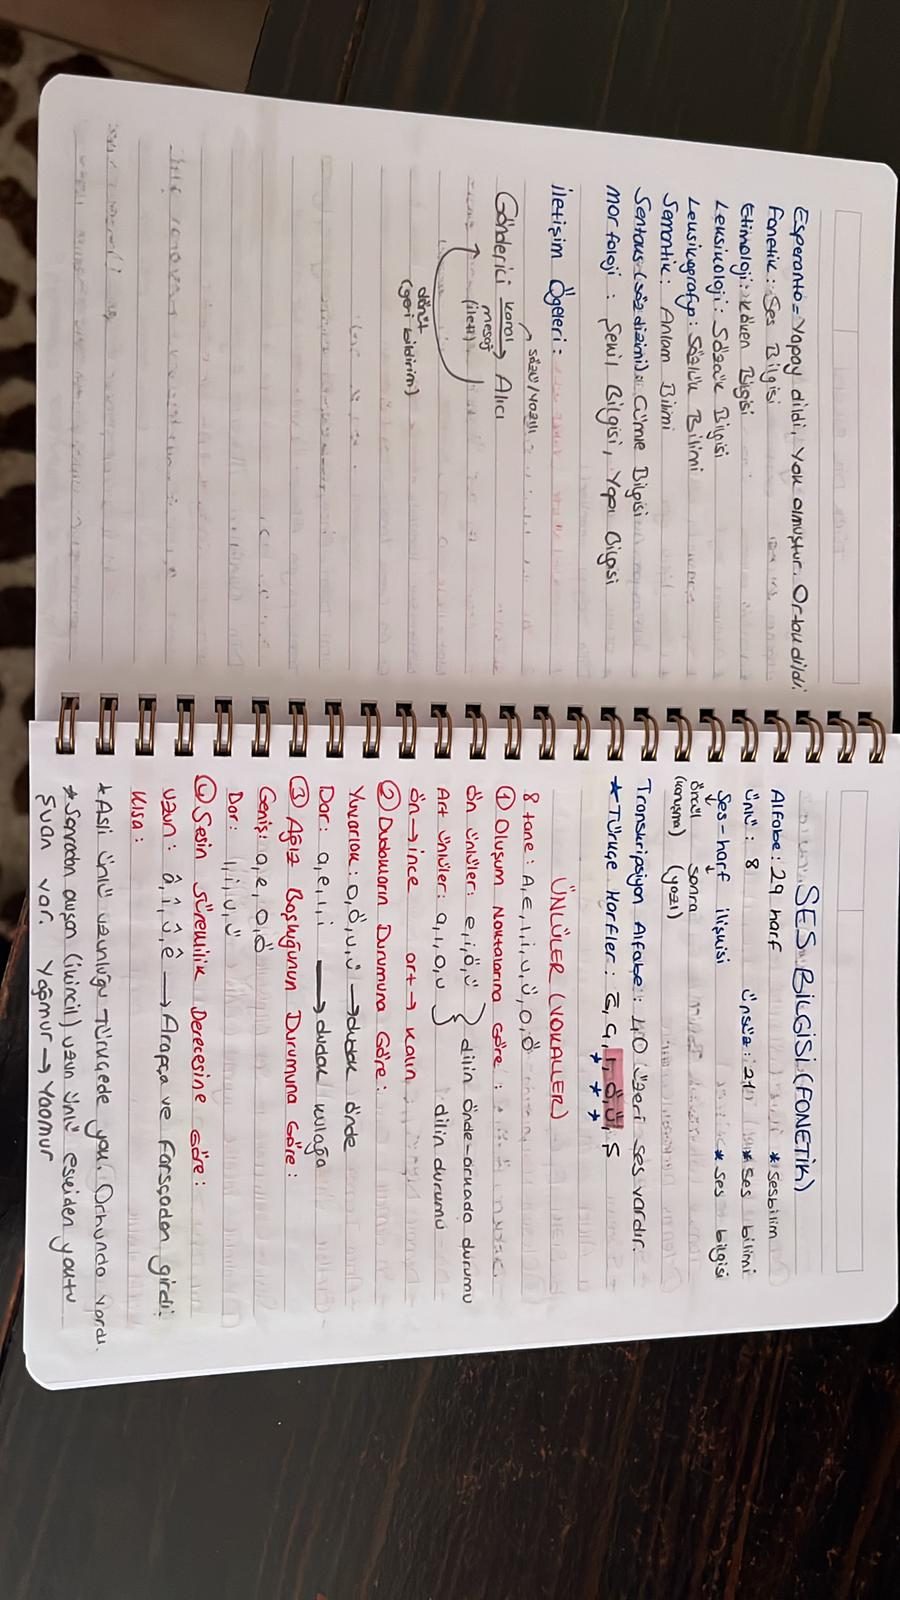 Esperanto = Yapay dildi, yok olmuştur. Ortak dildi.
Fonetik: Ses Bilgisi
Etimoloji: Köken Bilgisi
Leksikoloji: Sözcük Bilgisi
Leksikografya: Sözlük Bilimi
Semantik: Anlam Bilimi
Sentaks (söz dizimi): Cümle Bilgisi
morfoloji: Şekil Bilgisi, Yapı Bilgisi
İletişim Ögeleri:
sözlü/yazılı
Gönderici kanal Alıcı
mesaj
(ileti)
dönüt
(geri bildirim)
SES BİLGİSİ (FONETİK)
Alfabe: 29 harf * sesbilim
ünlü: 8 ünsüz: 21 * ses bilimi
Ses-harf ilişkisi * ses bilgisi
öncül sonra
(konuşma) (yazı)
Transkripsiyon Alfabe: 40 üzeri ses vardır.
* Türkçe Harfler: ı, ö, ü, ş
* * *
ÜNLÜLER (VOKALLER)
8 tane: A, E, I, i, U, Ü, O, Ö
① Oluşum Noktalarına Göre:
Ön ünlüler: e, i, ö, ü } dilin önde-arkada durumu
Art ünlüler: a, ı, o, u dilin durumu
ön → ince art → kalın
② Dudakların Durumuna Göre:
Yuvarlak: o, ö, u, ü → dudak önde
Dar: a, e, ı, i → dudak kulağa
③ Ağız Boşluğunun Durumuna Göre:
Geniş: a, e, o, ö
Dar: ı, i, u, ü
④ Sesin Süreklilik Derecesine Göre:
Uzun: â, î, û, ê → Arapça ve Farsçadan girdi.
Kısa:
* Asli ünlü uzunluğu Türkçede yok. Orhunda vardı.
* Sonradan oluşan (ikincil) uzun ünlü eskiden yoktu
Şuan var. Yağmur → Yaamur